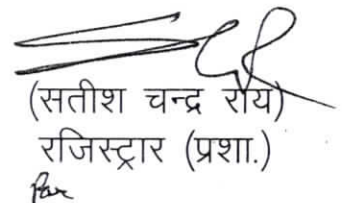 (सतीश चन्द्र रॉय)
रजिस्ट्रार (प्रशा.)